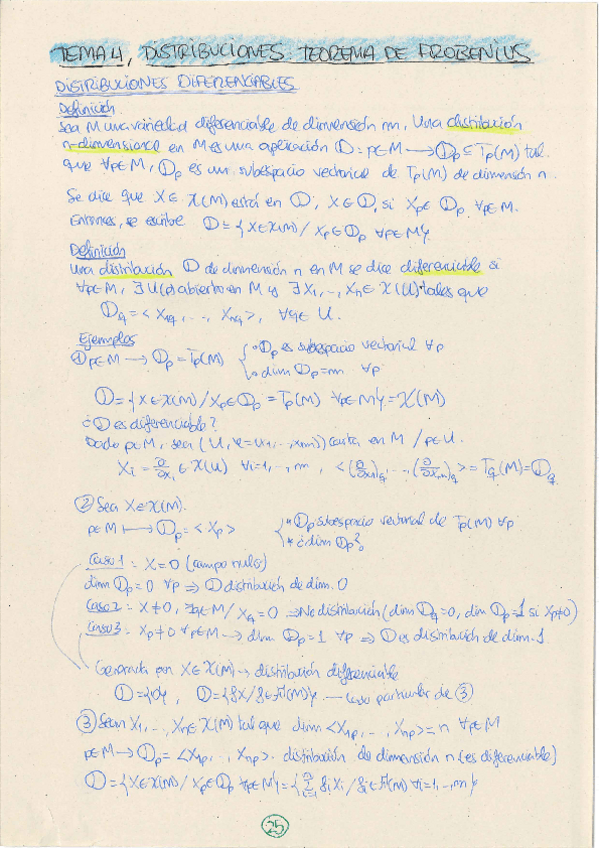 TEMA 4, DISTRIBUCIONES. TEOREMA DE FROBENIUS
DISTRIBUCIONES DIFERENCIABLES
Definición
Sea M una variedad diferenciable de dimensión m, Una distribución
n-dimensional en M es una aplicación D: p∈M → Dp ⊆ Tp(M) tal
que ∀p∈M, Dp es un subespacio vectorial de Tp(M) de dimensión n.
Se dice que X∈𝔛(M) está en D, X∈D, si Xp∈Dp ∀p∈M.
Entonces, se escribe D={X∈𝔛(M) / Xp∈Dp ∀p∈M}.
Definición
Una distribución D de dimensión n en M se dice diferenciable si
∀p∈M, ∃ U(p) abierto en M y ∃ X1, .., Xn∈𝔛(U) tales que
Dq = <X1q, .., Xnq>, ∀q∈U.
Ejemplos
① p∈M → Dp = Tp(M) { • Dp es subespacio vectorial ∀p
• dim Dp = m ∀p
D={X∈𝔛(M) / Xp∈Dp = Tp(M) ∀p∈M} = 𝔛(M)
¿D es diferenciable?
Dado p∈M, sea (U, φ=x1, .., xm) carta en M / p∈U.
Xi = ∂/∂xi ∈ 𝔛(U) ∀i=1, .., m, <(∂/∂x1)q, .., (∂/∂xm)q> = Tq(M) = Dq
② Sea X∈𝔛(M).
p∈M ↦ Dp = <Xp> { * Dp subespacio vectorial de Tp(M) ∀p
* ¿dim Dp?
Caso 1: X=0 (campo nulo)
dim Dp = 0 ∀p ⇒ D distribución de dim. 0
Caso 2: X≠0, ∃q∈M / Xq=0 ⇒ No distribución (dim Dq=0, dim Dp=1 si Xp≠0)
Caso 3: Xp≠0 ∀p∈M → dim Dp=1 ∀p ⇒ D es distribución de dim. 1
Generada por X∈𝔛(M) → distribución diferenciable
D={0}, D={fX / f∈F(M)}. — Caso particular de ③
③ Sean X1, .., Xn∈𝔛(M) tal que dim <X1p, .., Xnp> = n ∀p∈M
p∈M → Dp = <X1p, .., Xnp>. distribución de dimensión n (es diferenciable)
D={X∈𝔛(M) / Xp∈Dp ∀p∈M} = {∑ fiXi / fi∈F(M) ∀i=1, .., n}
25